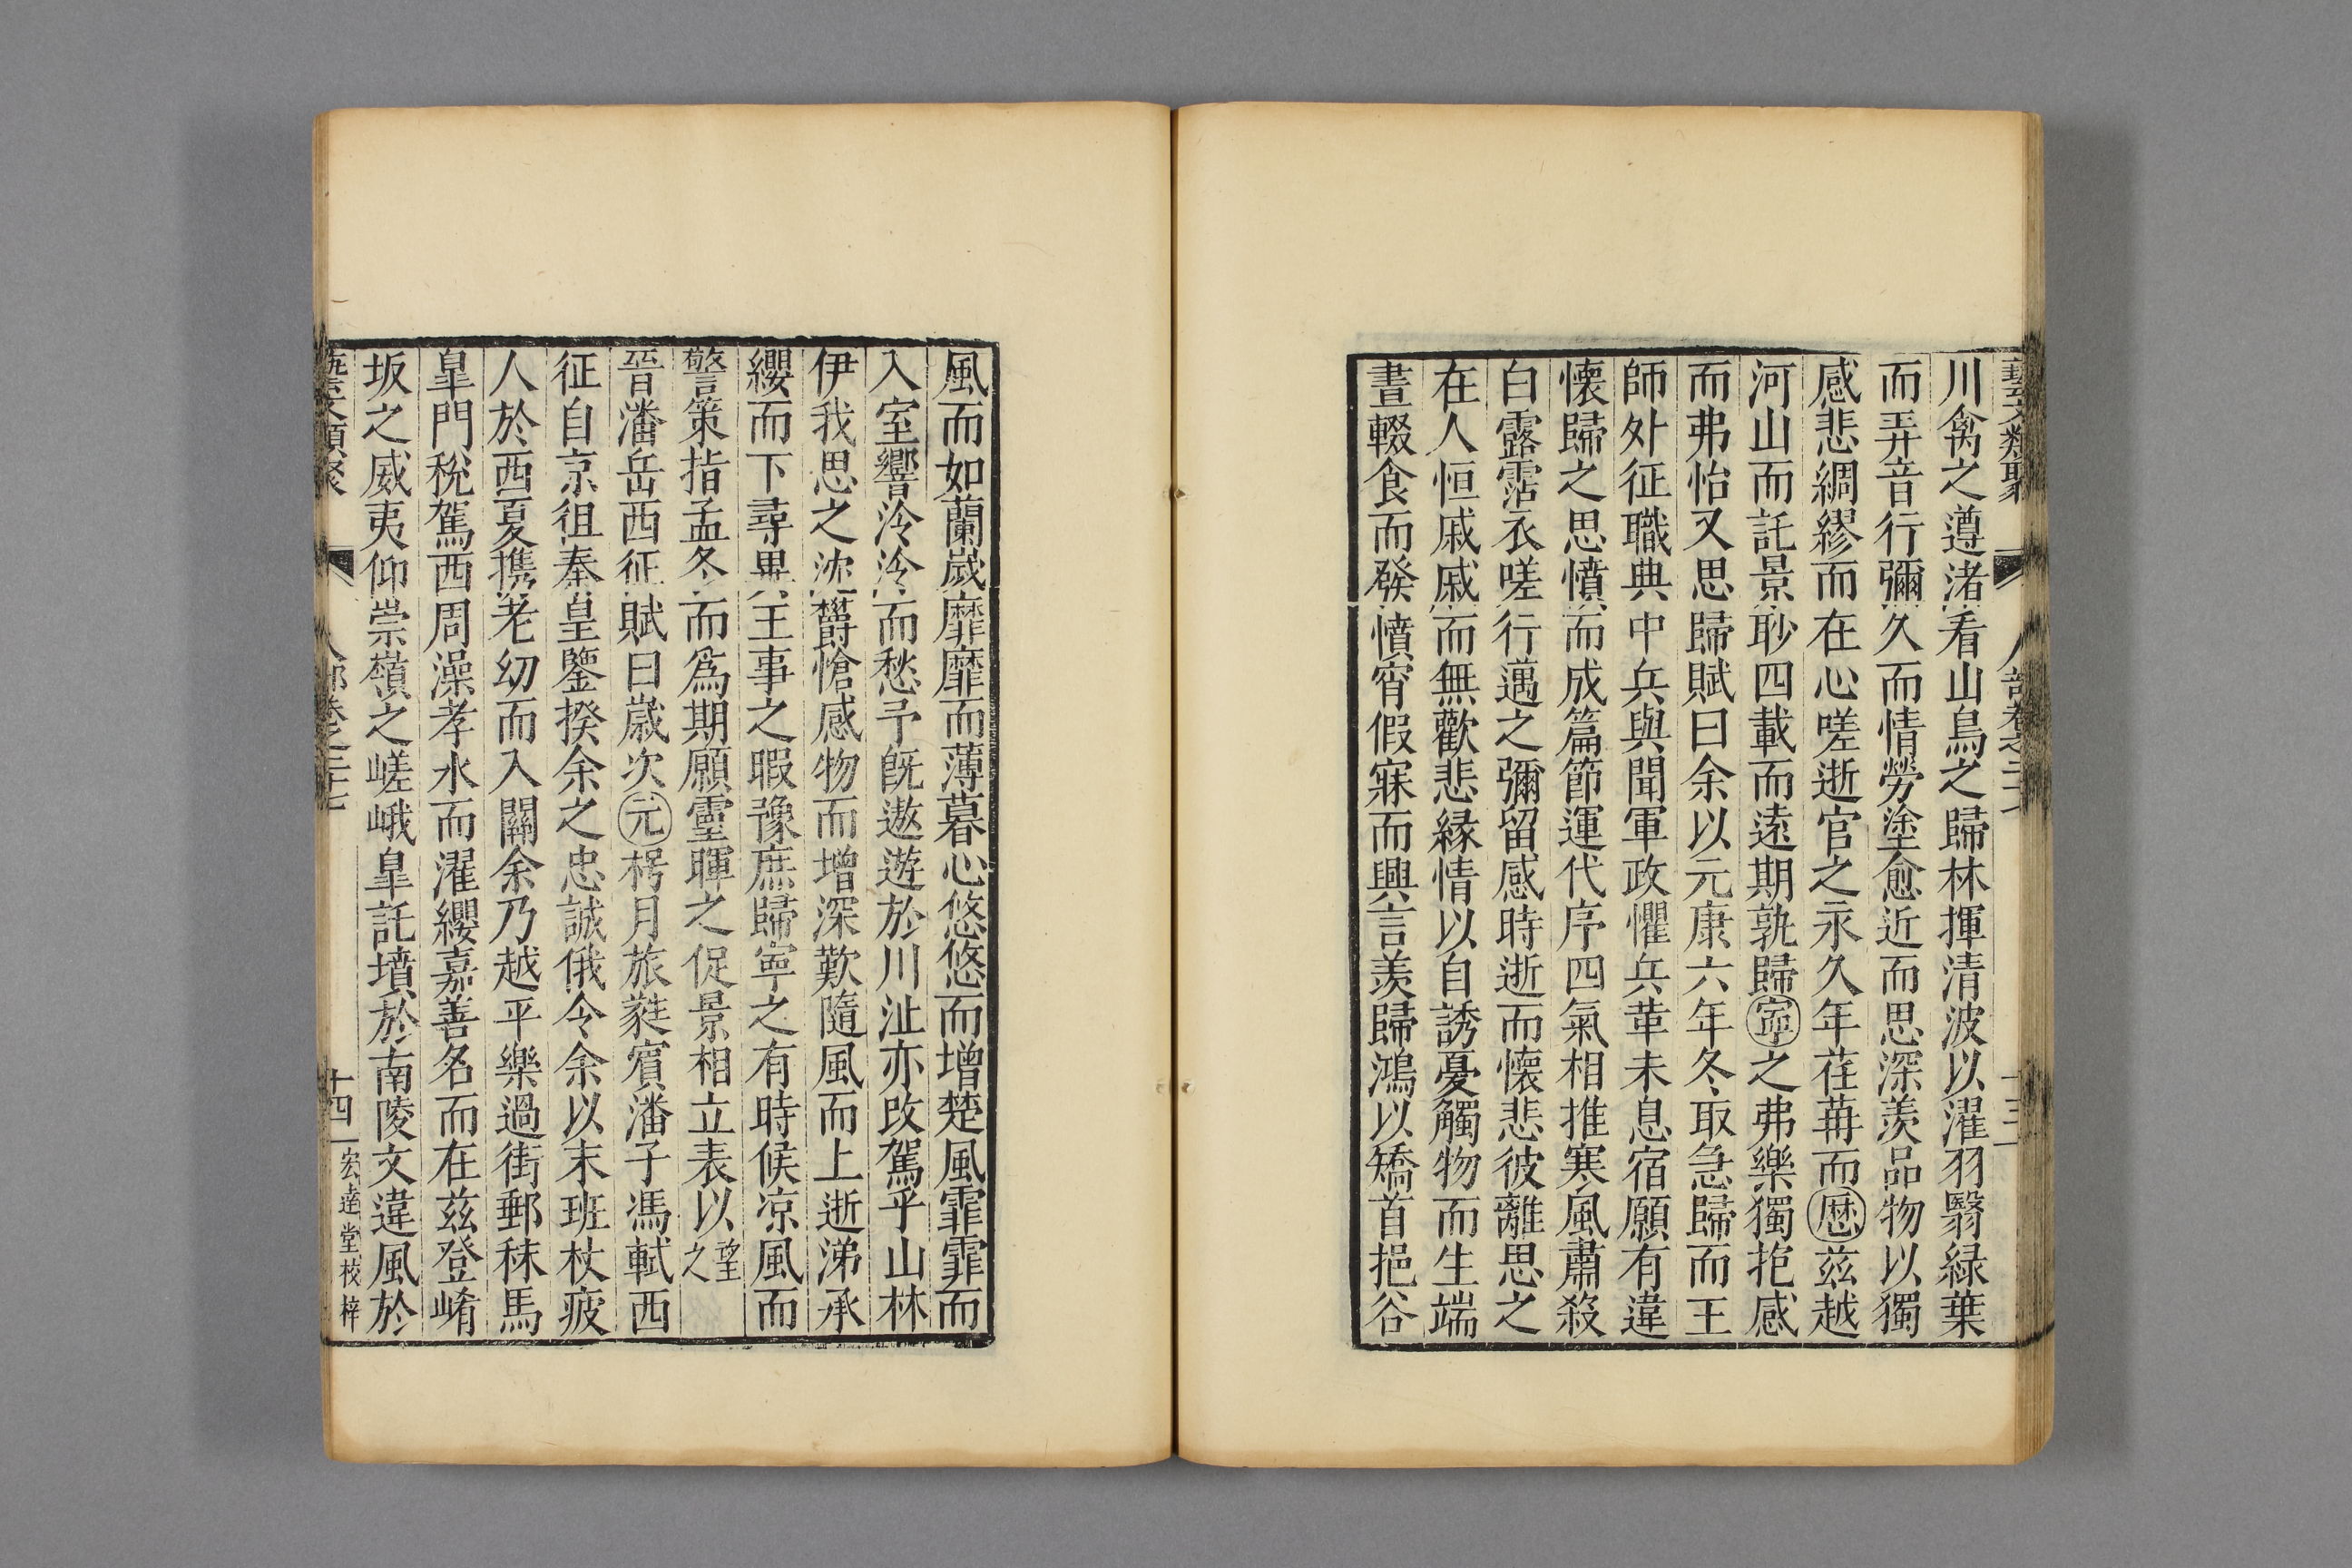 藝文類聚 人部卷之二十七 十三
川禽之遵渚看山鳥之歸林揮清波以濯羽翳緑葉
而弄音行彌久而情勞塗愈近而思深羨品物以獨
感悲綢繆而在心嗟逝官之永久年荏苒而厯兹越
河山而託景眇四載而遠期孰歸寧之弗樂獨抱感
而弗怡又思歸賦曰余以元康六年冬取急歸而王
師外征職典中兵與聞軍政懼兵革未息宿願有違
懷歸之思憤而成篇節運代序四氣相推寒風肅殺
白露霑衣嗟行邁之彌留感時逝而懷悲彼離思之
在人恒戚戚而無歡悲縁情以自誘憂觸物而生端
晝輟食而發憤宵假寐而興言羨歸鴻以矯首挹谷
風而如蘭歲靡靡而薄暮心悠悠而增楚風霏霏而
入室響泠泠而愁予旣遨遊於川沚亦改駕乎山林
伊我思之沈欝愴感物而增深歎隨風而上逝涕承
纓而下尋異王事之暇豫庶歸寧之有時候凉風而
警策指孟冬而爲期願靈暉之促景相立表以望之
晉潘岳西征賦曰歳次元枵月旅蕤賓潘子馮軾西
征自京徂秦皇鑒揆余之忠誠俄令余以末班杖疲
人於西夏携老幼而入關余乃越平樂過街郵秣馬
皐門稅駕西周澡孝水而濯纓嘉善名而在兹登崤
坂之威夷仰崇嶺之嵯峨皐託墳於南陵文違風於
藝文類聚 人部卷之二十七 十四 宏達堂校梓